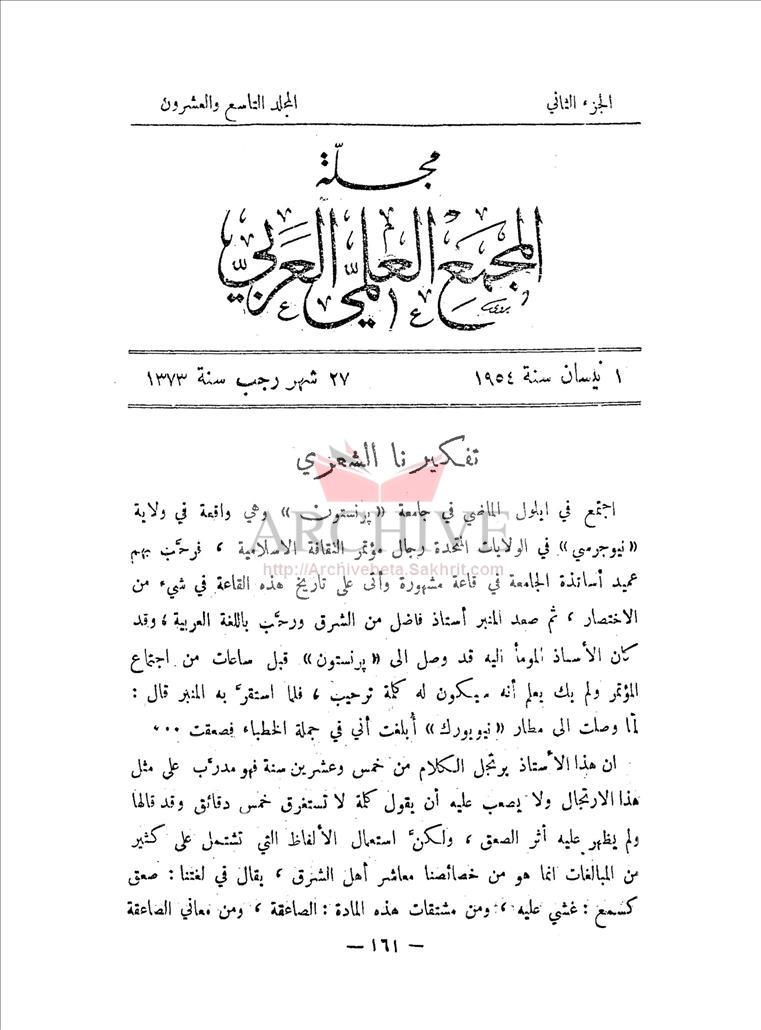 الجزء الثاني
المجلد التاسع والعشرون
مجلة
المجمع العلمي العربي
١ نيسان سنة ١٩٥٤
٢٧ شهر رجب سنة ١٣٧٣
تفكيرنا الشعري
اجتمع في ايلول الماضي في جامعة «پرنستون» وهي واقعة في ولاية
ARCHIVE
«نيوجرسي» في الولايات المتحدة رجال مؤتمر الثقافة الاسلامية ، فرحَّب بهم
http://Archivebeta.Sakhrit.com
عميد أساتذة الجامعة في قاعة مشهورة وأتى على تاريخ هذه القاعة في شيء من
الاختصار ، ثم صعد المنبر أستاذ فاضل من الشرق ورحَّب باللغة العربية ، وقد
كان الأستاذ المومأ اليه قد وصل الى «پرنستون» قبل ساعات من اجتماع
المؤتمر ولم يك يعلم أنه سيكون له كلمة ترحيب ، فلما استقرَّ به المنبر قال :
لمّا وصلت الى مطار «نيويورك» أُبلغت أني في جملة الخطباء فصعقت ...
ان هذا الأستاذ يرتجل الكلام من خمس وعشرين سنة فهو مدرَّب على مثل
هذا الارتجال ولا يصعب عليه أن يقول كلمة لا تستغرق خمس دقائق وقد قالها
ولم يظهر عليه أثر الصعق ، ولكنَّ استعمال الألفاظ التي تشتمل على كثير
من المبالغات انما هو من خصائصنا معاشر أهل الشرق ، يقال في لغتنا : صعق
كسمع : غشي عليه ، ومن مشتقات هذه المادة : الصاعقة ، ومن معاني الصاعقة
— ١٦١ —